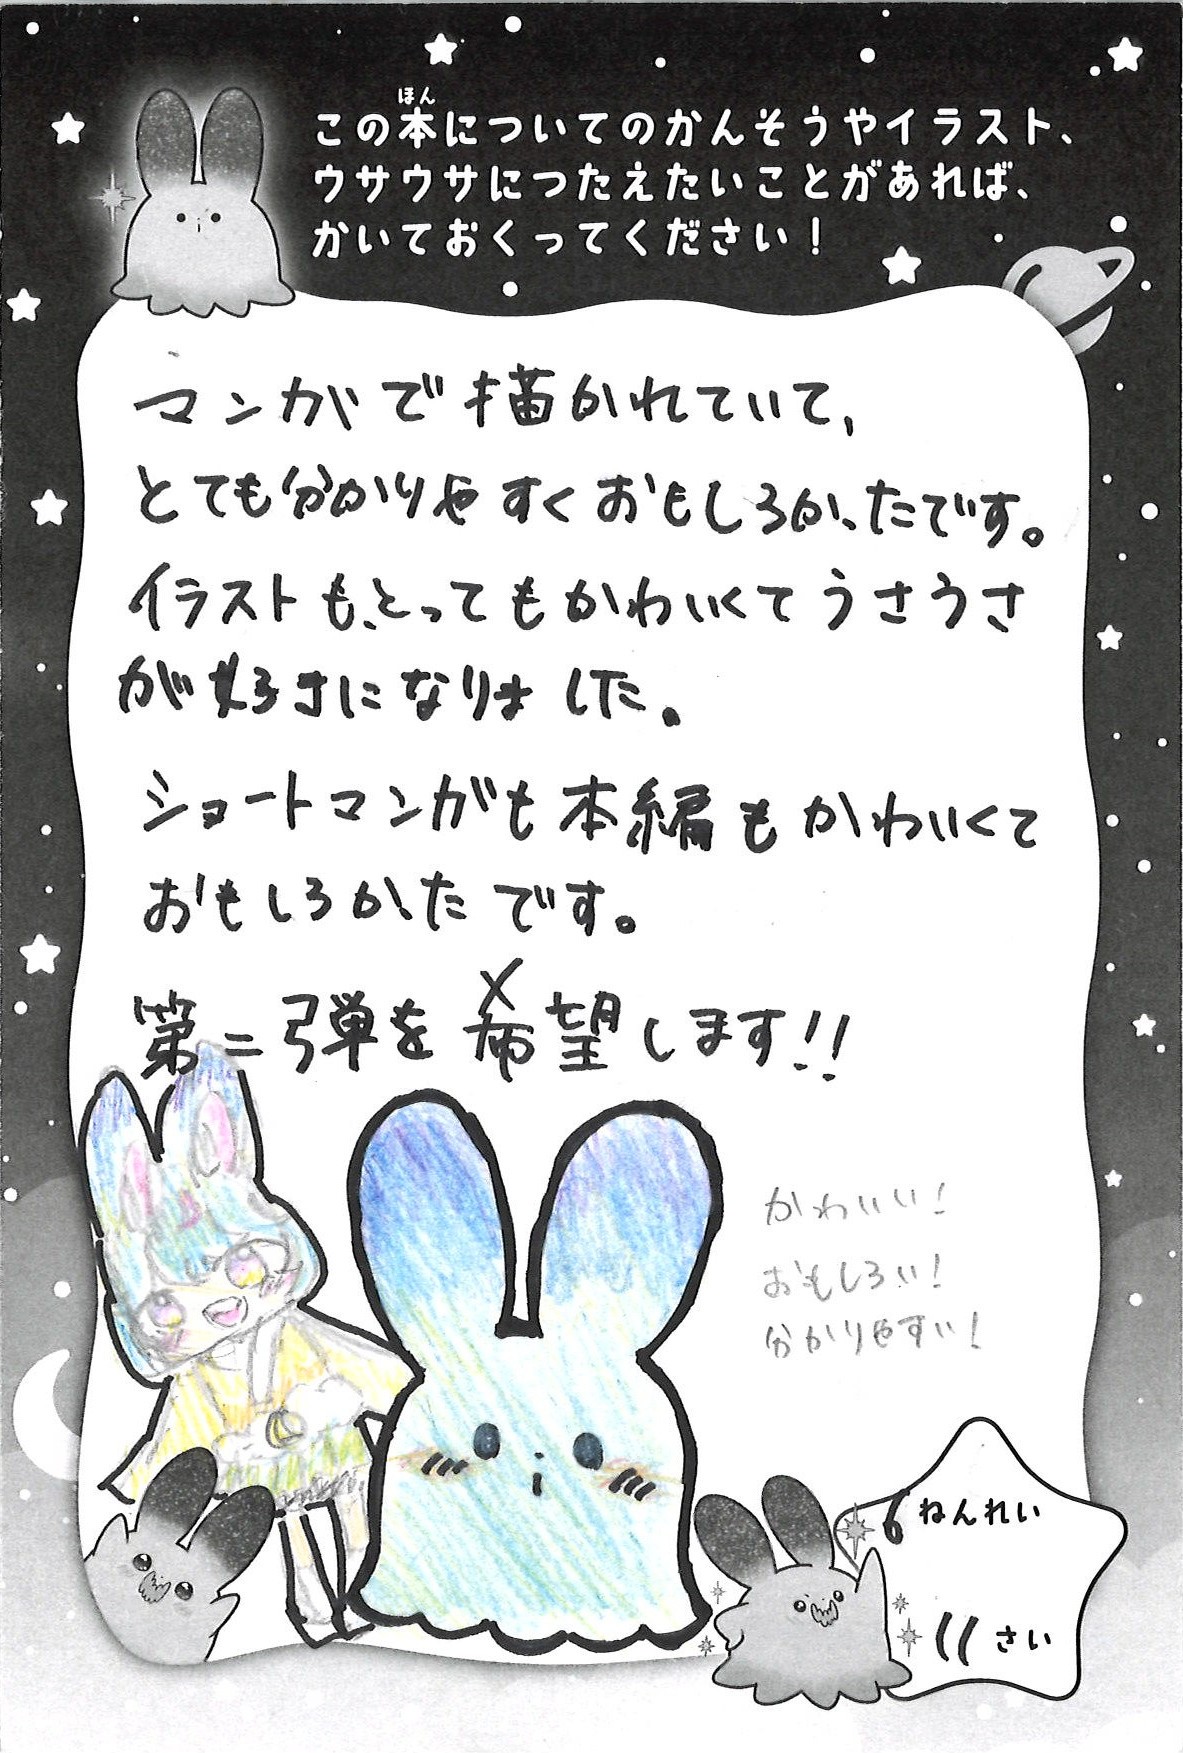 この本についてのかんそうやイラスト、
ほん
ウサウサにつたえたいことがあれば、
かいておくってください！
マンガで描かれていて、
とても分かりやすくおもしろかったです。
イラストも、とってもかわいくてうさうさ
が好きになりました。
ショートマンガも本編もかわいくて
おもしろかったです。
第二弾を希望します!!
かわいい！
おもしろい！
分かりやすい！
ねんれい
11さい